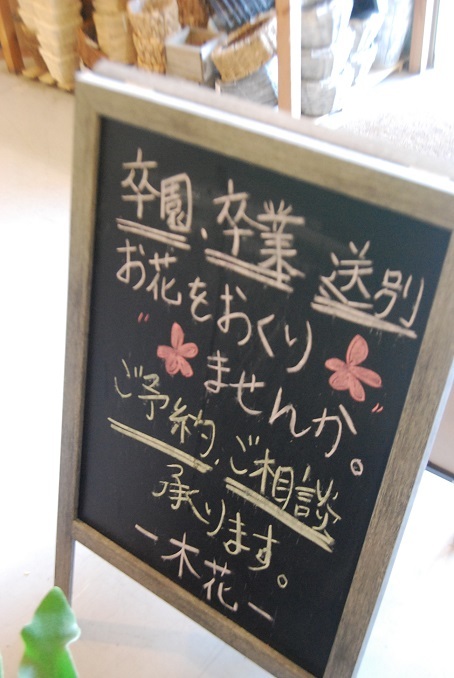 卒園、卒業 送別
お花をおくり
ませんか。
ご予約、ご相談
承ります。
ー木花ー